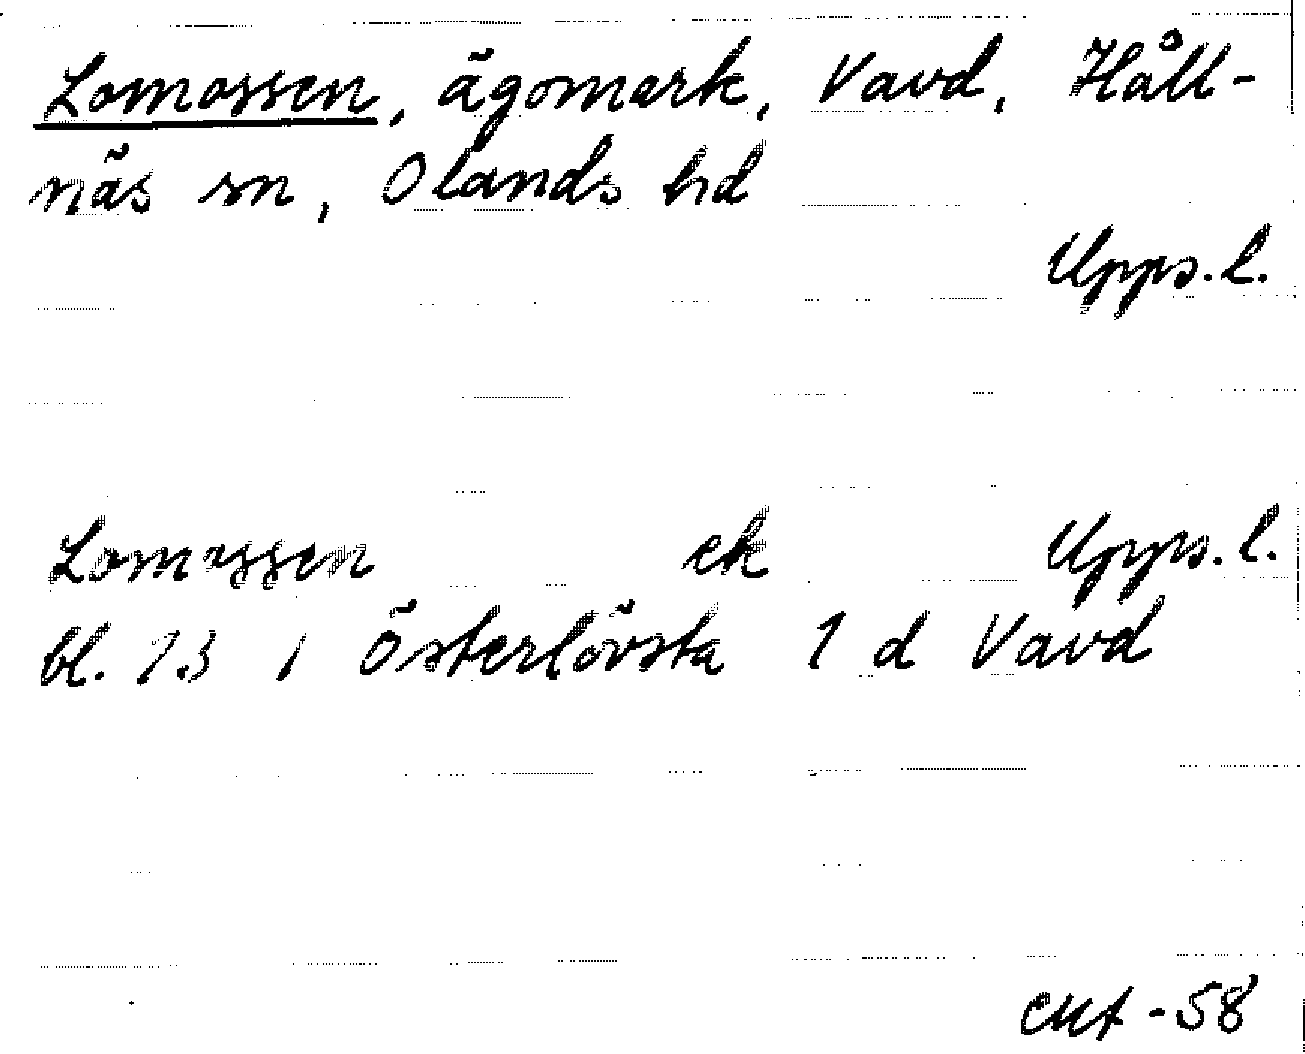 Lomossen, ägomark, Vavd, Håll-
näs sn, Olands hd
Upps. l.
Lomossen ek Upps. l.
bl. 7.3 i Österlövsta 1 d Vavd
-58